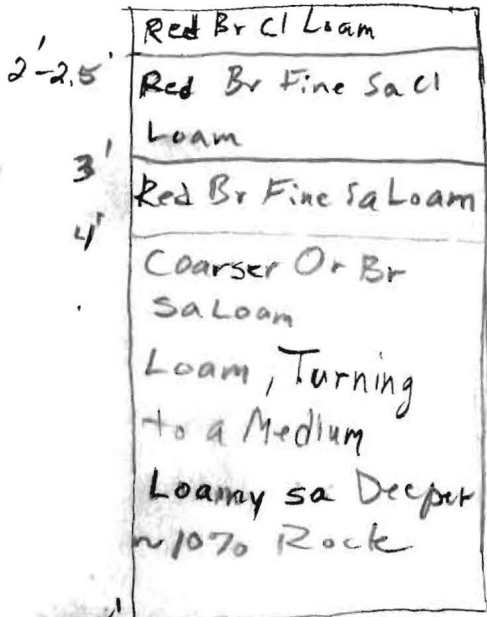 Red Br Cl Loam
2'-2.5'
Red Br Fine Sa Cl
Loam
3'
Red Br Fine Sa Loam
4'
Coarser Or Br
Sa Loam
Loam, Turning
to a Medium
Loamy sa Deeper
~10% Rock